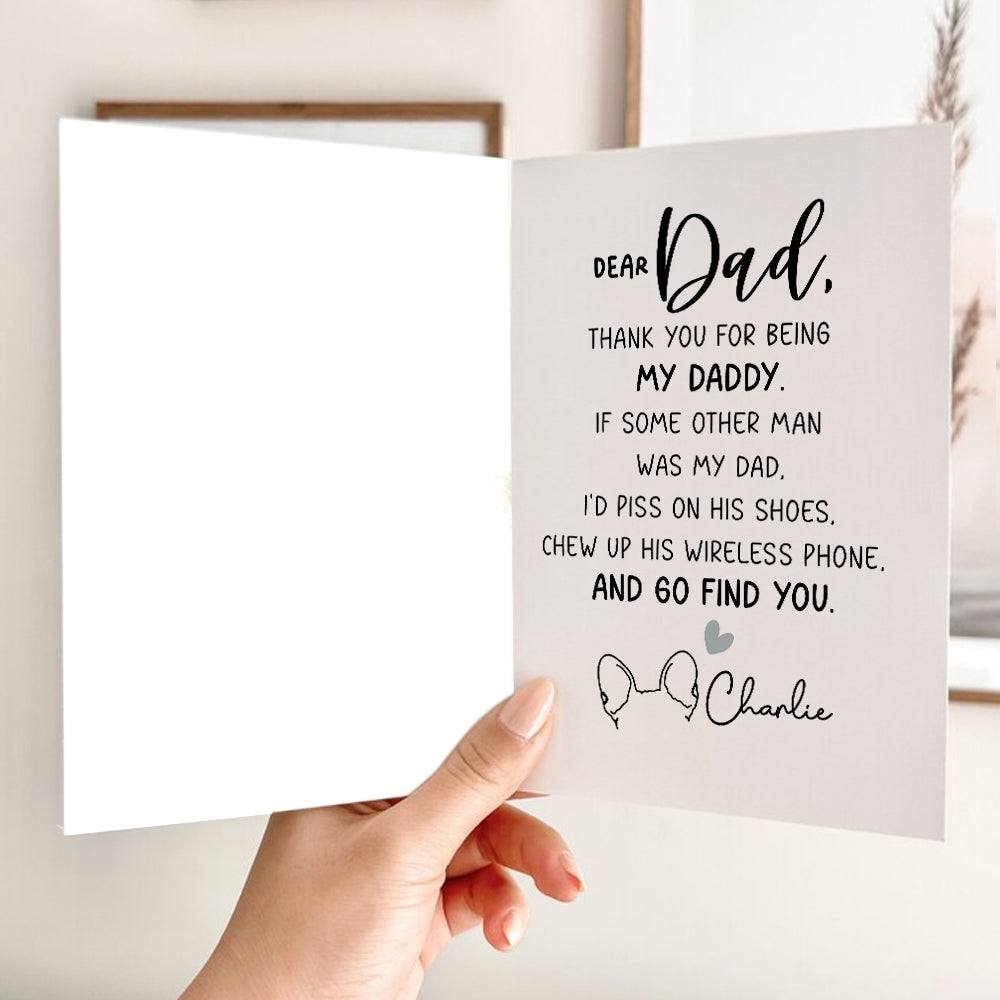 DEAR Dad,
THANK YOU FOR BEING
MY DADDY.
IF SOME OTHER MAN
WAS MY DAD,
I'D PISS ON HIS SHOES,
CHEW UP HIS WIRELESS PHONE,
AND GO FIND YOU.
Charlie